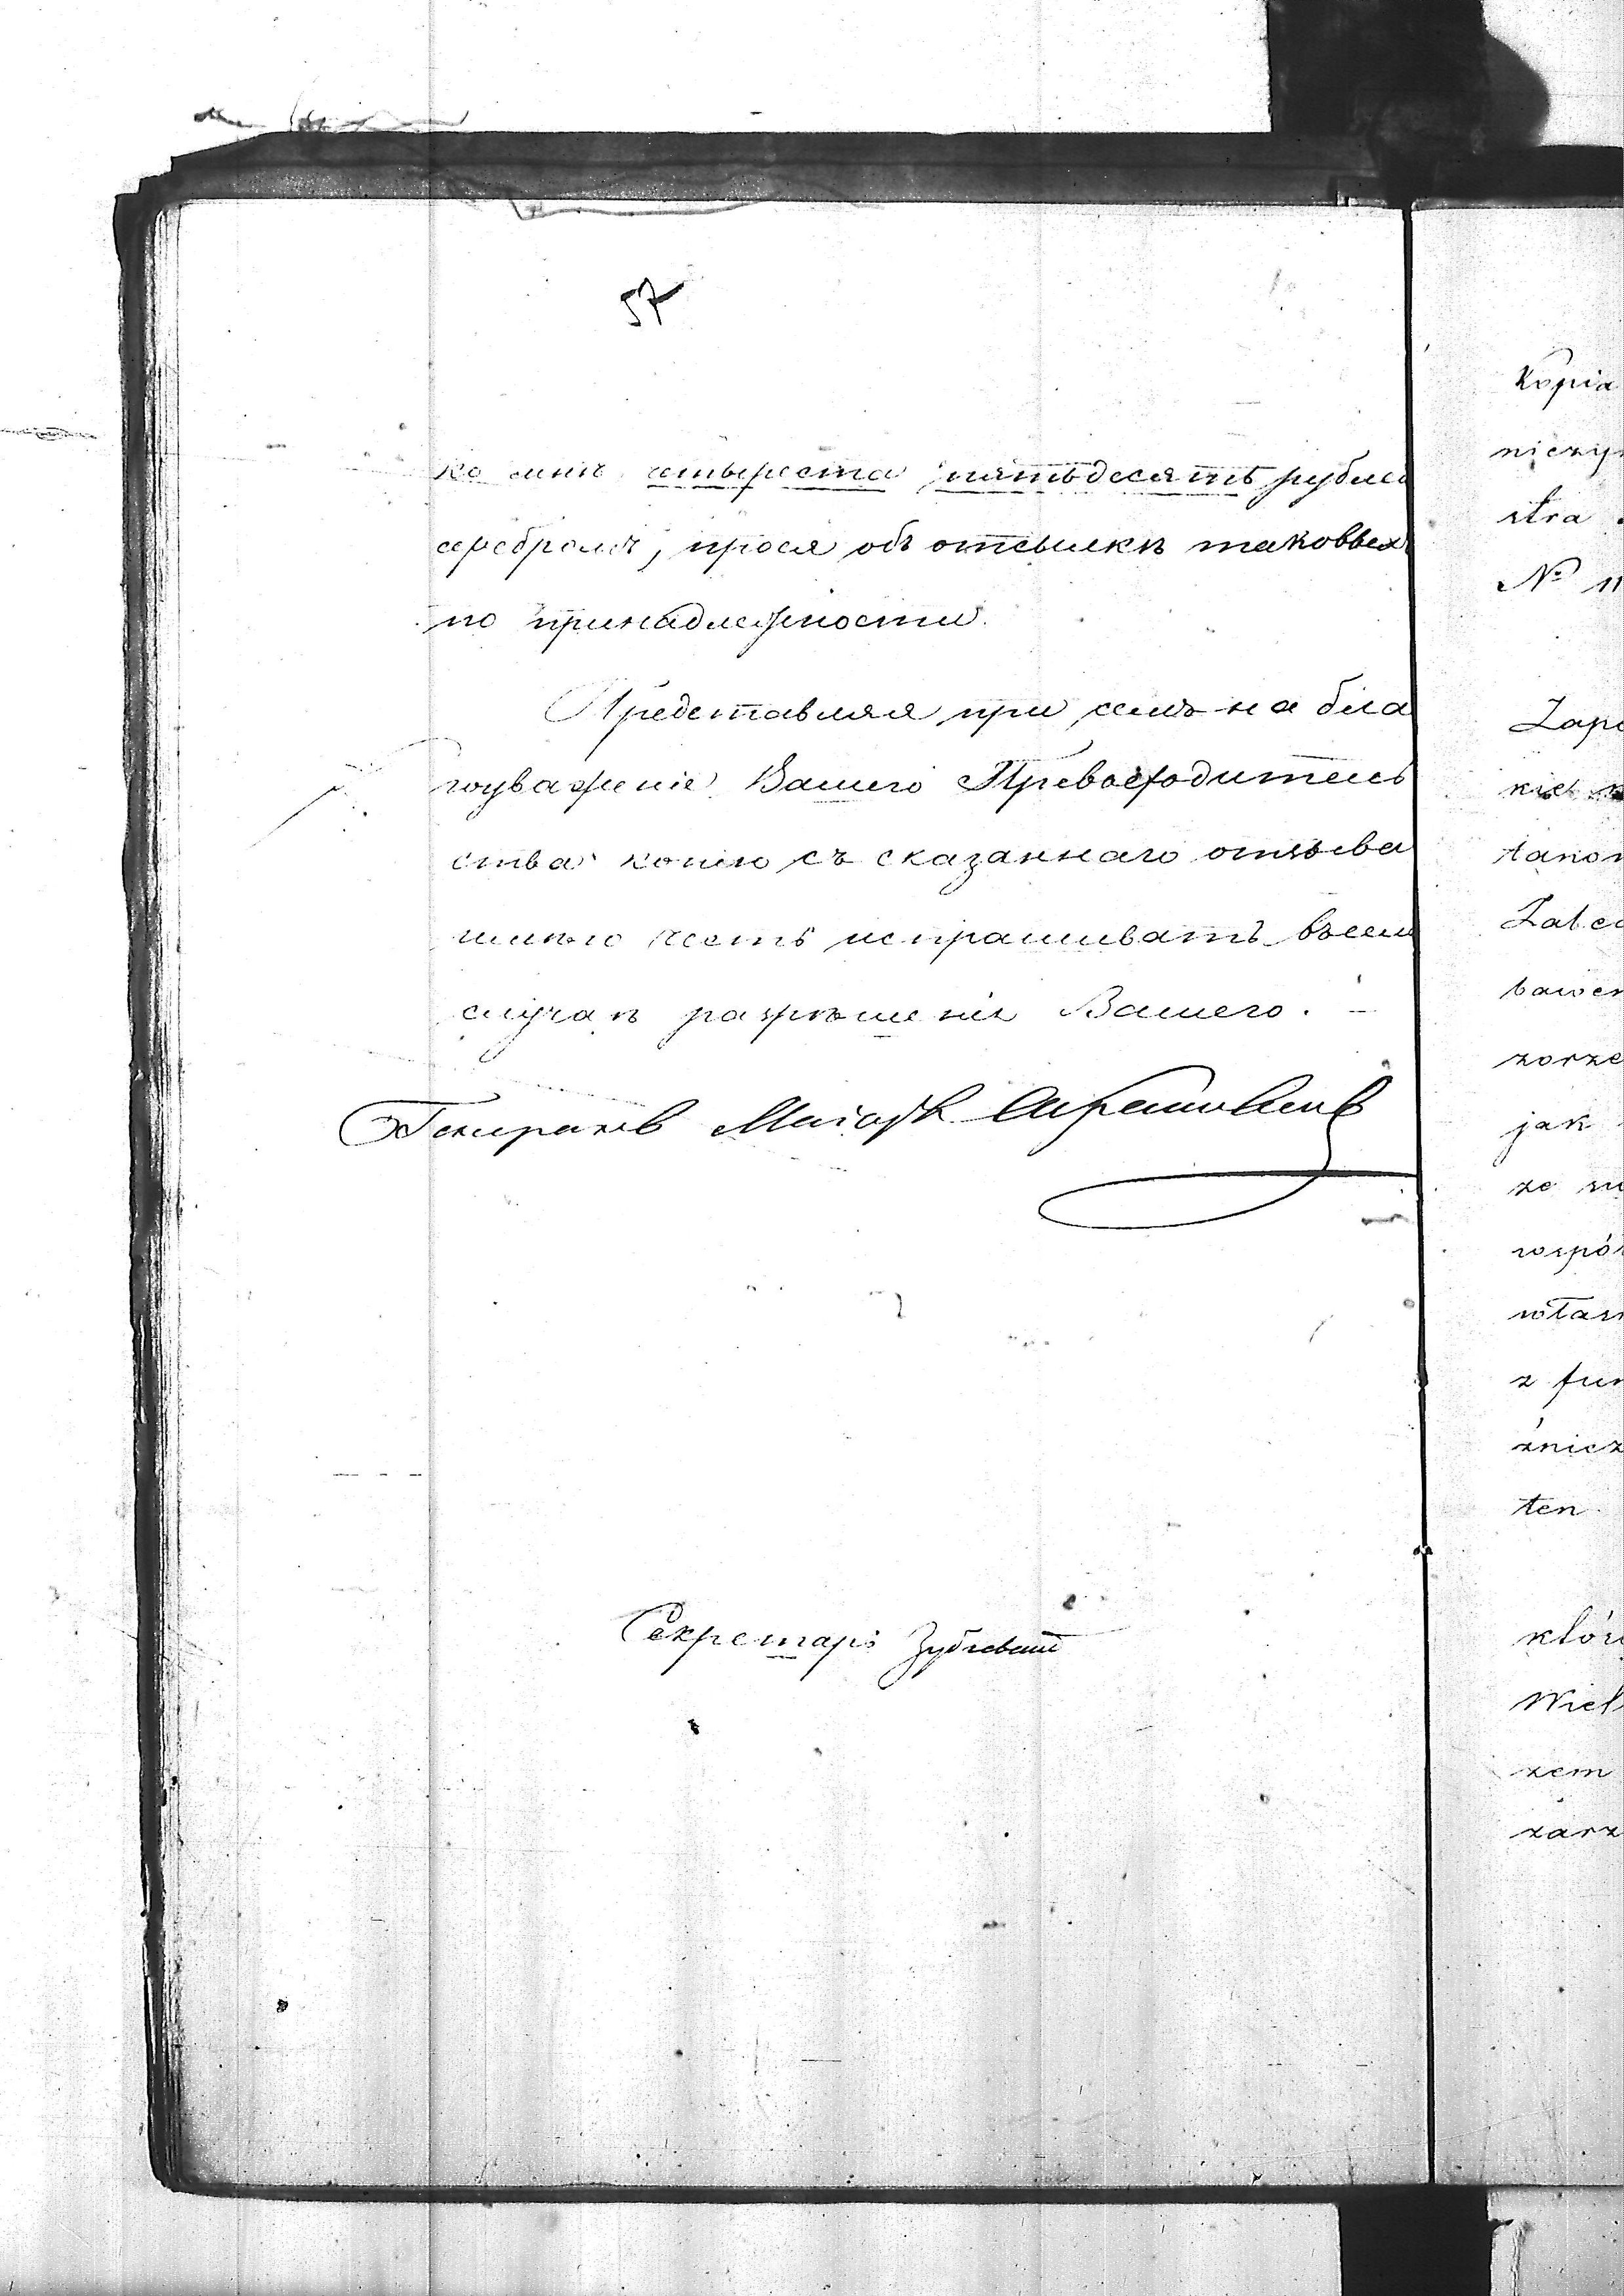 57
ко мнѣ четыреста пятьдесятъ рублей
серебромъ, прося объ отсылкѣ таковыхъ
по принадлежности.
Представляя при семъ на бла
гоуваженіе Вашего Превосходитель
ства копію съ сказаннаго отзыва
имѣю честь испрашивать въ сем
случаѣ разрѣшенія Вашего.
Генералъ Маіоръ
Секретарь
Kopia
niczy
stra
№ 11
Zapo
kie
tano
Zale
bawen
zorze
jak
ze
wspó
włas
z fun
żnicz
ten
któr
Wiel
zem
zarz